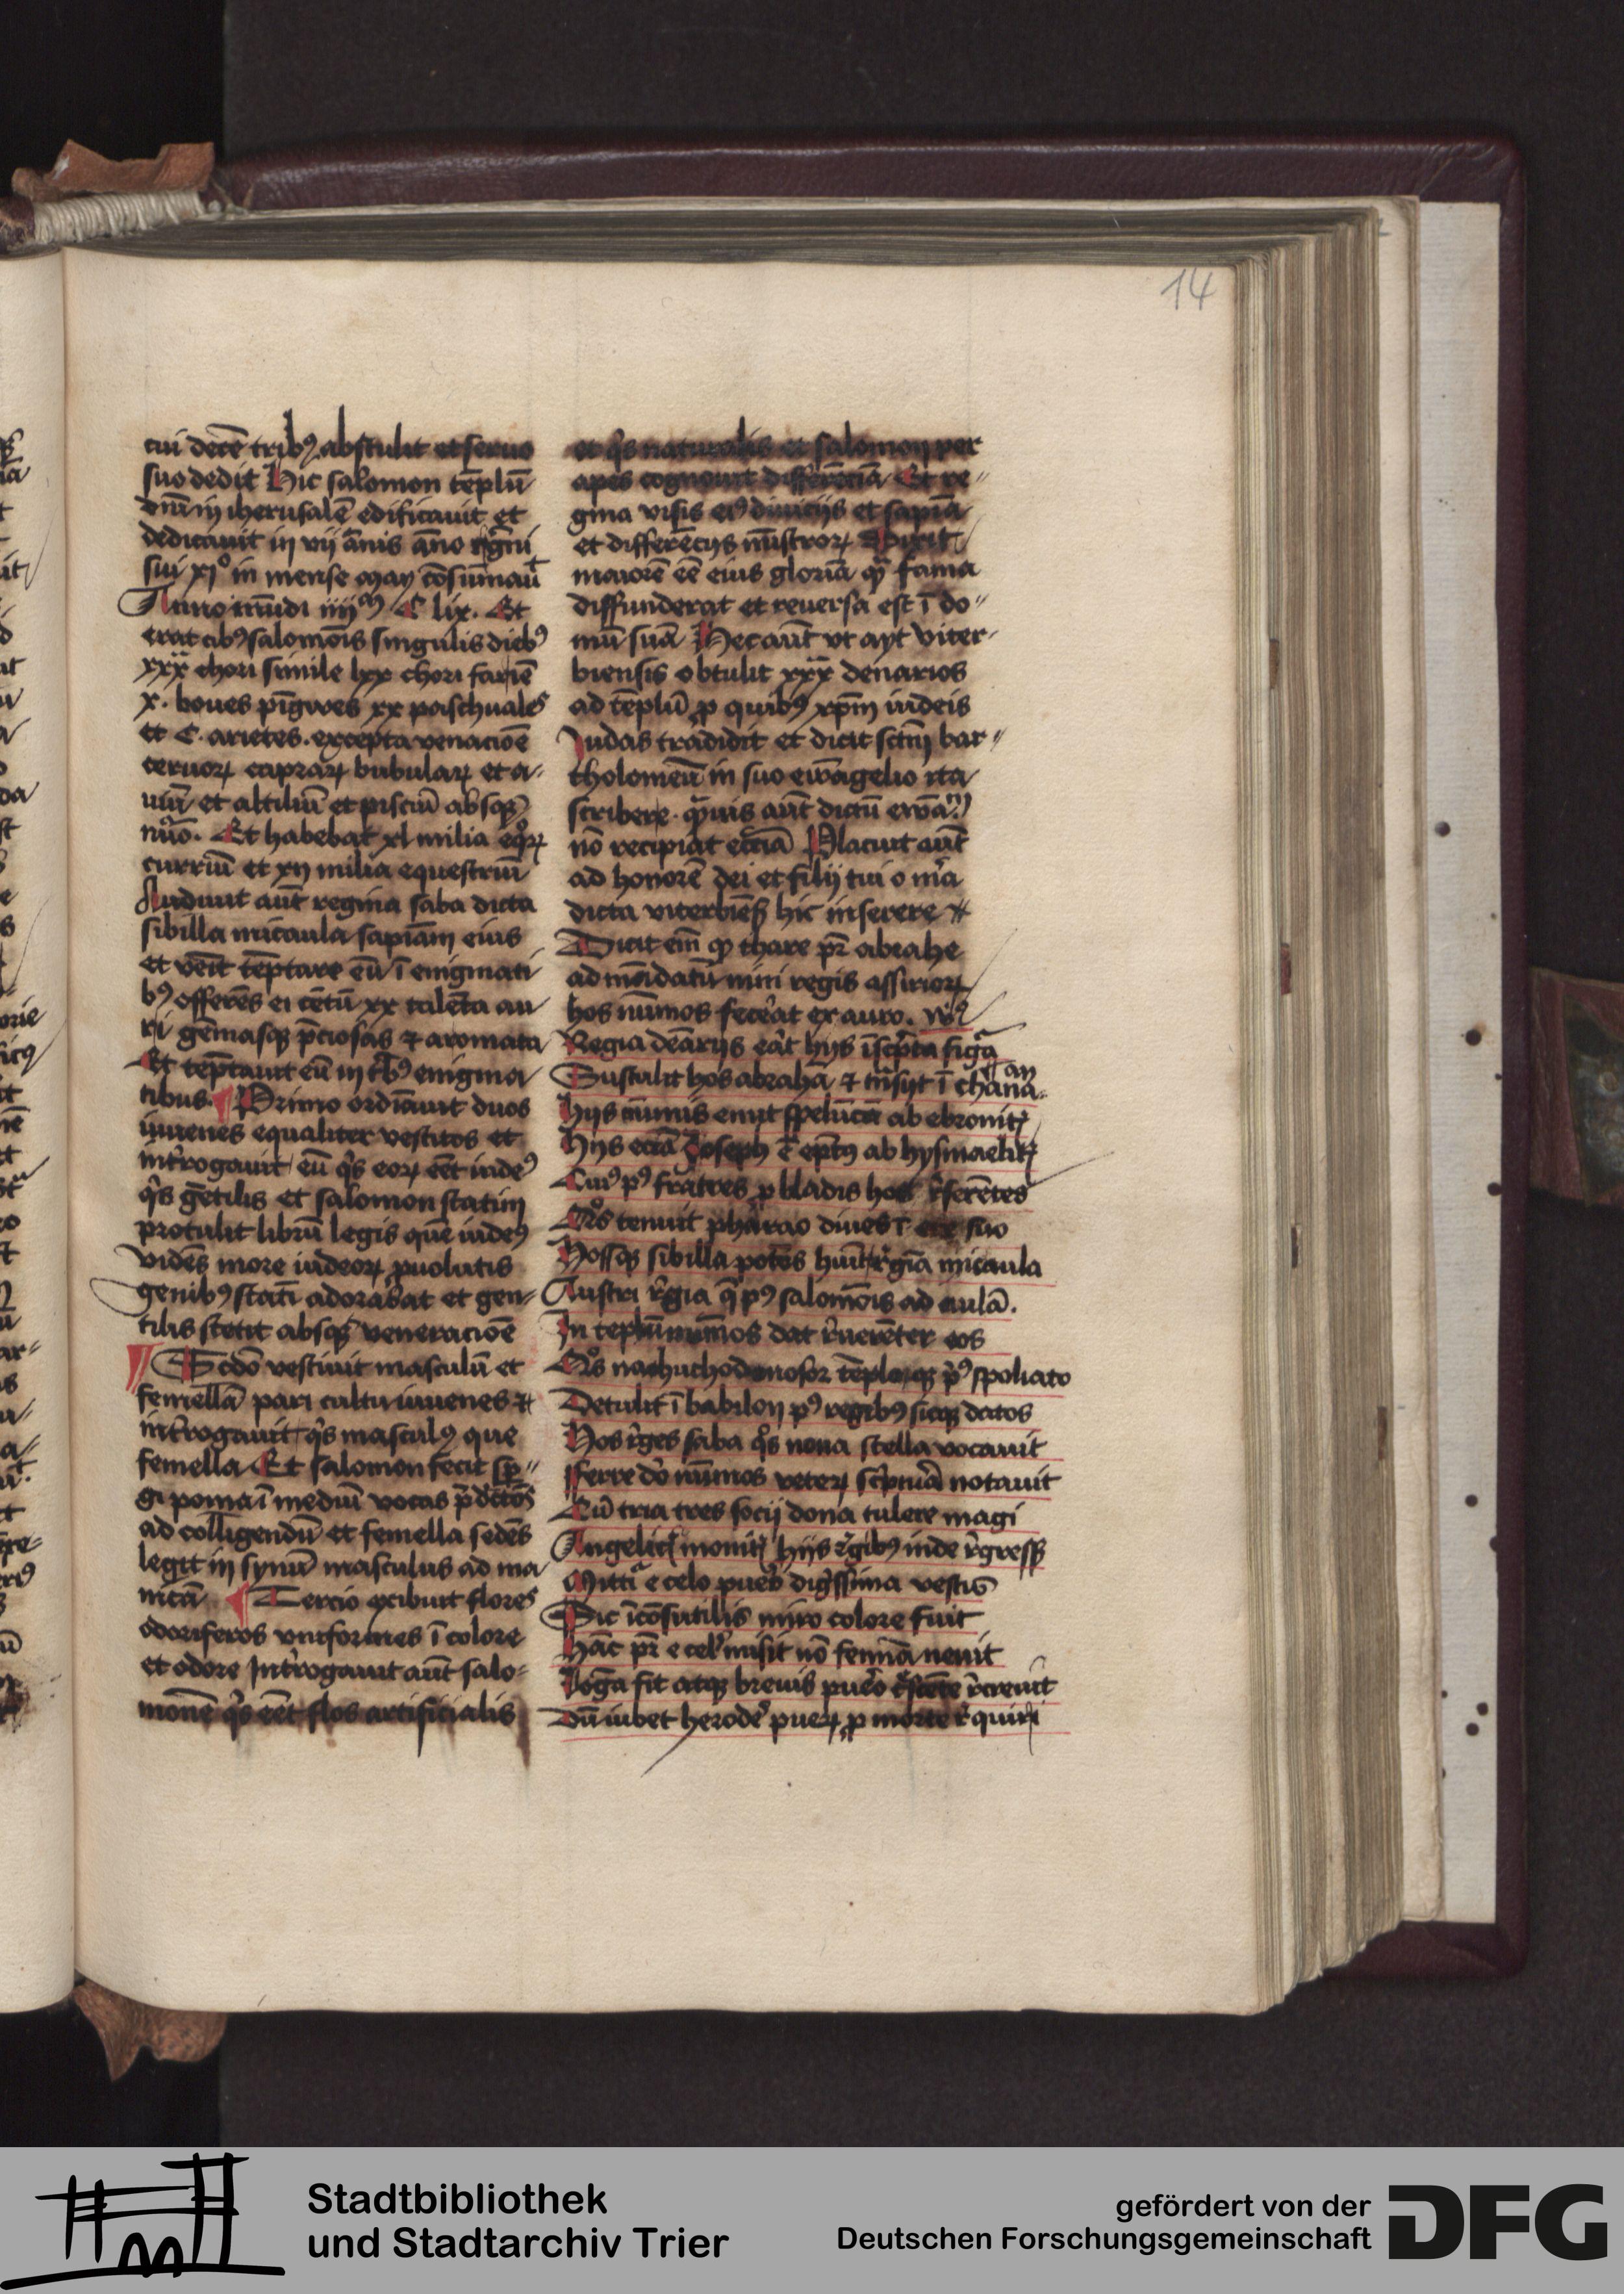 14
cui decē tribꝰ abstulit et seruo
suo dedit Hic salomon tēplū
dn̄m in iherusalē edificauit et
dedicauit in vij ānis āno rḡni
sui xjº in mense may cōsūmauͭ
Anno mūdi iiijᵐ C lix. Et
erat cibꝰ salomōis singulis diebꝰ
xxx chori simile lxx chori fariē
x. boues pīgwes xx paschuales
et C. arietes. excepta venaciōe
ceruoꝝ capraꝝ bubulaꝝ et a-
uiū et altiliū et pisciū absqꝫ
nūo. Et habebat xl milia eqͦꝝ
curriū et xij milia equestriū
Audiuit aūt regina saba dicta
sibilla micaula sapiām eius
et vēit tēptare eū ī enigmati
bꝰ offerēs ei cētū xx talēta au
ri gēmasqꝫ p̄ciosas ⁊ aromata
Et tēptauit eū in tͥbꝰ enigma
tibus. Primo ordīauit duos
iuuenes equaliter vestitos et
int̄rogauit eū qͥs eoꝝ eēt iudeꝰ
qͥs gētilis et salomon statim
protulit librū legis quē iudeꝰ
vidēs more iudeoꝝ ꝓuolutis
genibꝰ statī adorabat et gen-
tilis stetit absqꝫ veneraciōe
Scd̄o vestiuit masculū et
femellā pari cultu iuuenes ⁊
int̄rogauit qͥs masculꝰ que
femella Et salomon fecit sp̄-
gi poma ī mediū vocās p̄dc̄tos
ad colligendū et femella sedēs
legit in synū masculus ad ma
nicā Tercio exibuit flores
odoriferos vniformes ī colore
et odore Int̄rogauit aūt salo-
monē qͥs eēt flos artificialis
et qͥs naturalis et salomon per
apes cognouit differēciā Et re-
gina visis eiꝰ diuicijs et sapiā
et differēcijs mīstroꝝ dixit
maiorē eē eius gloriā qͣ fama
diffunderat et reuersa est ī do-
mū suā Hec aūt vt ayt viter-
biensis obtulit xxx denarios
ad tēplū ꝓ quibꝰ xp̄m iudeis
Judas tradidit et dicit sctm̄ bar-
tholomeū in suo ewāgelio ita
scribere. qͣuis aūt dictū ewāᵐ
nō recipiat ecc̄ia Placuit aūt
ad honorē dei et filij tui o m̄ia
dicta viterbiēs hic inserere ⁊
Dicit em̄ qꝫ thare pr̄ abrahe
ad mādatū nini regis assirioꝝ
hos nūmos fecͤat ex auro. vͦsꝰ
Regia denarijs eͣat hijs īscͥpta figͣa
Sustulit hos abrahā ⁊ trāsijt ī chanaan
Hijs nūmis emit spelūcā ab ebronitꝭ
Hijs eciā Joseph ē ept̄ꝰ ab hysmaelitꝭ
Cuiꝰ pꝰ fratres ꝓ bladis hos rͤferētes
Qͦs tenuit pharao diues ī ere suo
Hossqꝫ sibilla potēs huīt rͤgiā micaula
Austri rͤgia q̄ pꝰ salomōis ad aulā.
In teplū nūmos dat rͤuerēter eos
Qͦs nabuchodonosor tēplo qꝫ pͥꝰ spoliato
Detulit ī babilon pꝰ regibꝰ sicqꝫ datos
Hos rͤges saba qͦs noua stella vocauit
fferre dō nūmos veteꝝ scͥptuͣa notauit
Cū tria tres socij dona tulere magi
Angelicꝭ monitꝭ hijs rͤgibꝰ inde rͤgressꝭ
Mittiͬ e celo pueͦ digͥssima vestis
Sic īcōsutilis miro colore fuit
Hāc pr̄ e celꝭ misit nō femīa neuit
Lōga fit atqꝫ breuis pueͦ cͤscēte rͤcreuit
Dū iubet herodeꝰ pueꝝ ꝓ morte rͤquiri
Stadtbibliothek
und Stadtarchiv Trier
gefördert von der
Deutschen Forschungsgemeinschaft
DFG